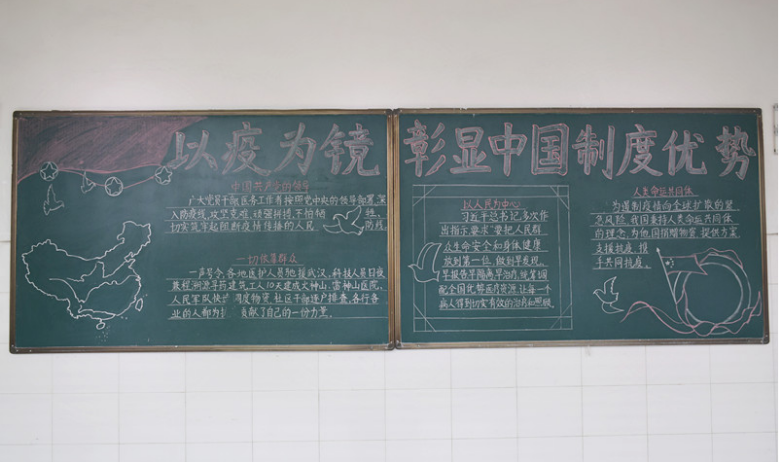 以疫为镜 彰显中国制度优势
中国共产党的领导
广大党员干部、医务工作者按照党中央的领导部署,深
入防疫线,攻坚克难,顽强拼搏,不怕牺牲,
切实筑牢起阻断疫情传播的人民防线。
一切依靠群众
一声号令,各地医护人员驰援武汉,科技人员日夜
兼程溯源寻药建筑,工人10天建成火神山、雷神山医院,
人民军队快护 调度物资,社区干部逐户排查,各行各
业的人都为 贡献了自己的一份力量。
以人民为中心
习近平总书记多次作
出指示要求“要把人民群
众生命安全和身体健康
放到第一位,做到早发现、
早报告早隔离早治疗,统筹调
配全国优势医疗资源,让每一个
病人得到切实有效的治疗和照顾。
人类命运共同体
为遏制疫情向全球扩散的紧
急风险,我国秉持人类命运共同体
的理念,为他国捐赠物资,提供方案
支援抗疫,携
手共同抗疫。